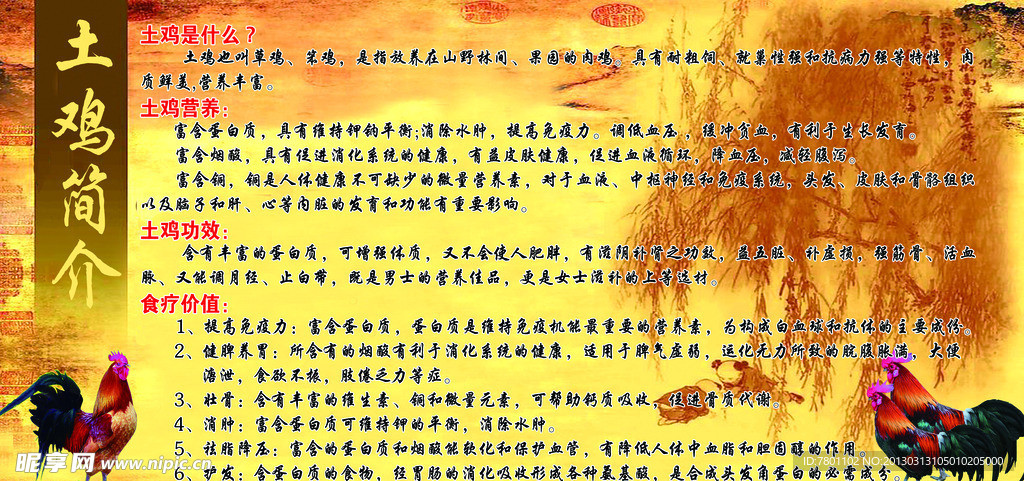 土鸡简介
土鸡是什么？
土鸡也叫草鸡、笨鸡，是指放养在山野林间、果园的肉鸡。具有耐粗饲、就巢性强和抗病力强等特性，肉
质鲜美,营养丰富。
土鸡营养：
富含蛋白质，具有维持钾钠平衡;消除水肿，提高免疫力。调低血压，缓冲贫血，有利于生长发育。
富含烟酸，具有促进消化系统的健康，有益皮肤健康，促进血液循环，降血压，减轻腹泻。
富含铜，铜是人体健康不可缺少的微量营养素，对于血液、中枢神经和免疫系统，头发、皮肤和骨骼组织
以及脑子和肝、心等内脏的发育和功能有重要影响。
土鸡功效：
含有丰富的蛋白质，可增强体质，又不会使人肥胖，有滋阴补肾之功效，益五脏、补虚损，强筋骨、活血
脉、又能调月经、止白带，既是男士的营养佳品，更是女士滋补的上等选材。
食疗价值：
1、提高免疫力：富含蛋白质，蛋白质是维持免疫机能最重要的营养素，为构成白血球和抗体的主要成份。
2、健脾养胃：所含有的烟酸有利于消化系统的健康，适用于脾气虚弱，运化无力所致的脘腹胀满，大便
溏泄，食欲不振，肢倦乏力等症。
3、壮骨：含有丰富的维生素、铜和微量元素，可帮助钙质吸收，促进骨质代谢。
4、消肿：富含蛋白质可维持钾的平衡，消除水肿。
5、祛脂降压：富含的蛋白质和烟酸能软化和保护血管，有降低人体中血脂和胆固醇的作用。
6、护发：含蛋白质的食物，经胃肠的消化吸收形成各种氨基酸，是合成头发角蛋白的必需成分。
昵享网 www.nipic.cn
ID:7801102 NO:20130313105010205000